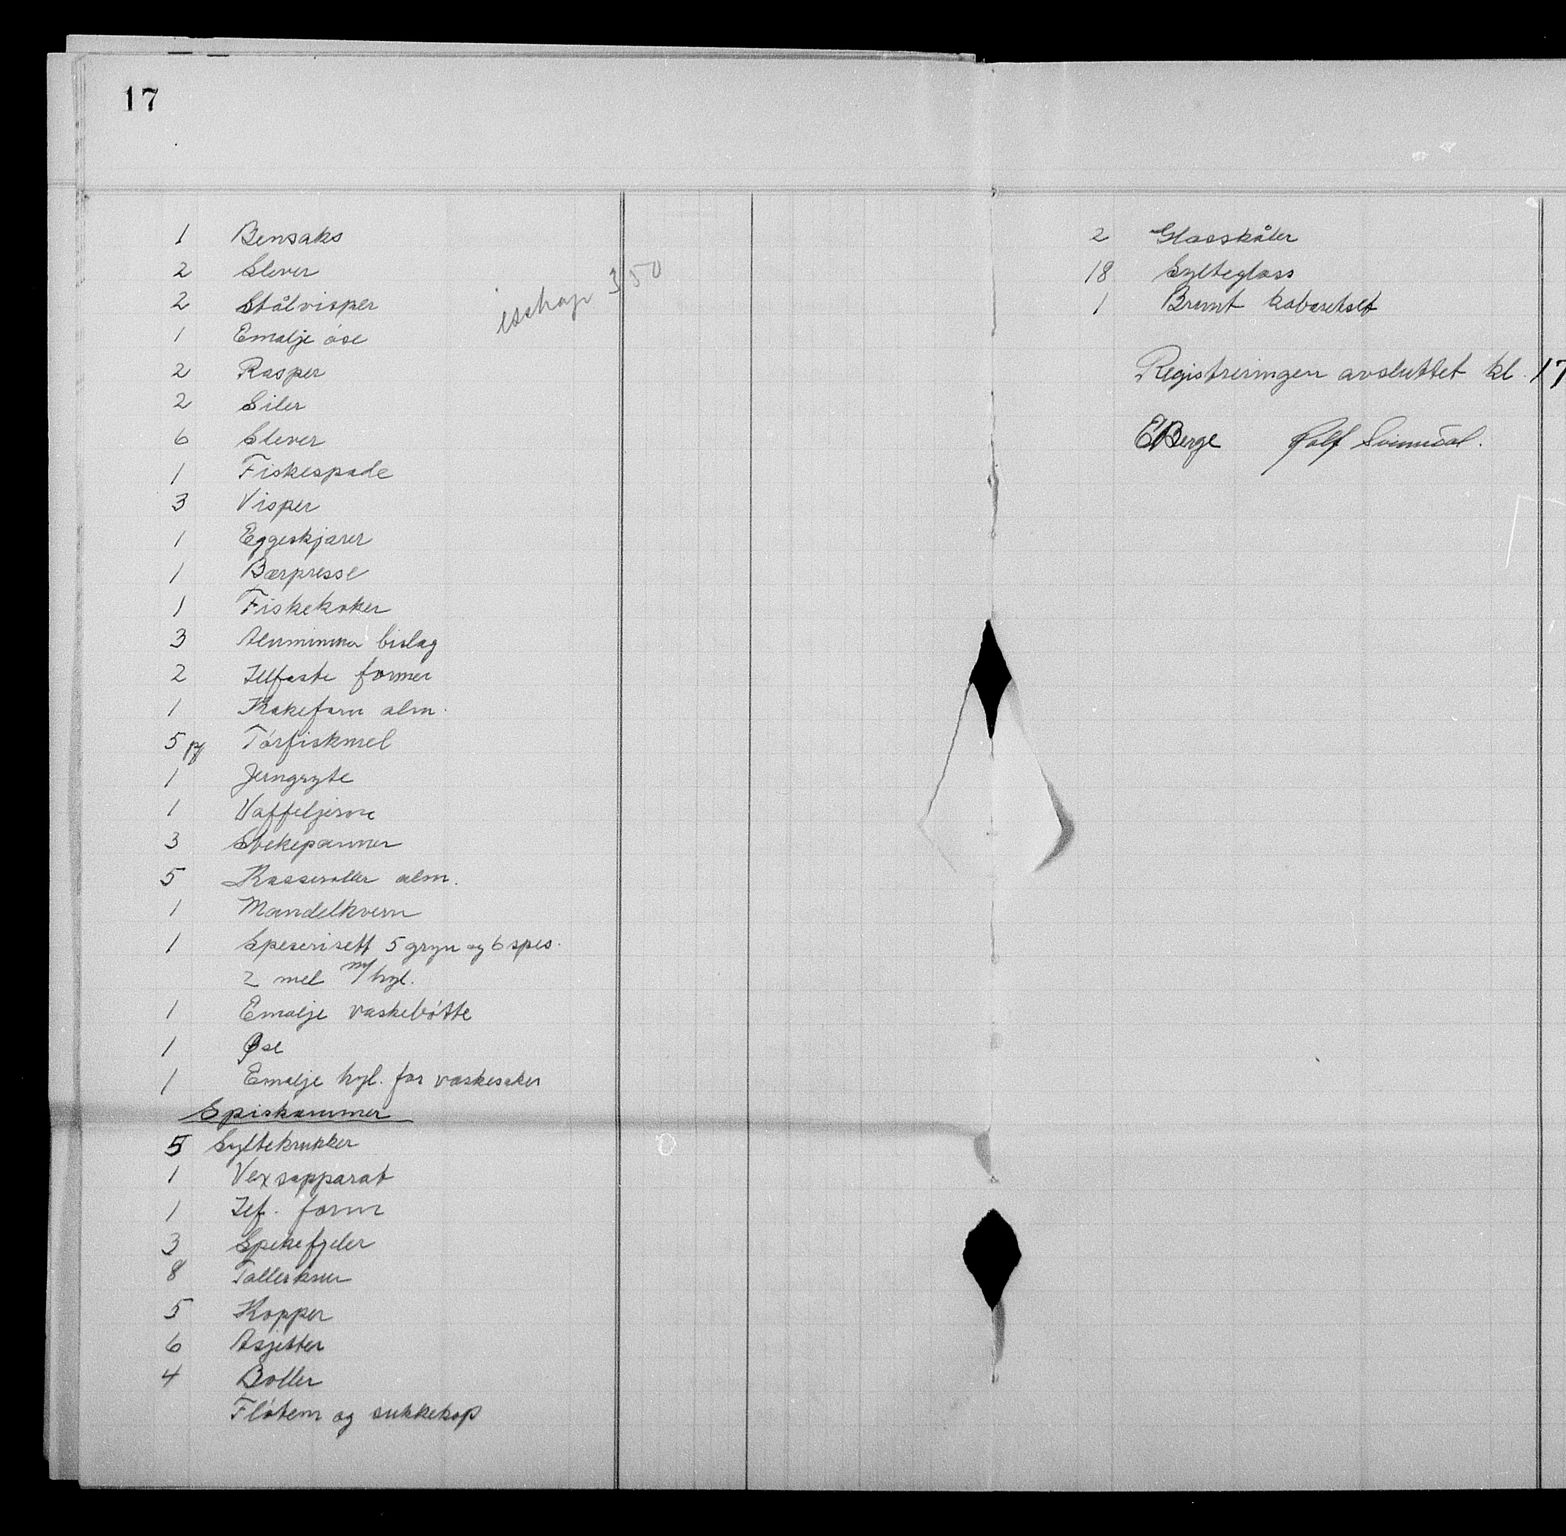 17
1 Bensaks
2 Slever
2 Stålvisper
isskap 350
1 Emalje øse
2 Rasper
2 Siler
6 Slever
1 Fiskespade
3 Visper
1 Eggeskjærer
1 Bærpresse
1 Fiskekoker
3 Aluminium bislag
2 Ildfaste former
1 Kakeform alm.
5 pk Tørfiskmel
1 Jerngryte
1 Vaffeljerne
3 Stekepanner
5 Kasseroller alm.
1 Mandelkvern
1 Speserisett 5 gryn og 6 spes.
2 mel m/hyl.
1 Emalje vaskebøtte
1 Øse
1 Emalje hyl. for vaskesaker
Spiskammer
5 Syltekrukker
1 Vexsapparat
1 Ilf. form
3 Spekefjeler
8 Tallerkner
5 Kopper
6 Asjetter
4 Boller
Fløtem og sukkekop
2 Glasskåler
18 Sylteglass
1 Brumt kabaretset
Registreringen avsluttet kl. 17
E Berge Rolf